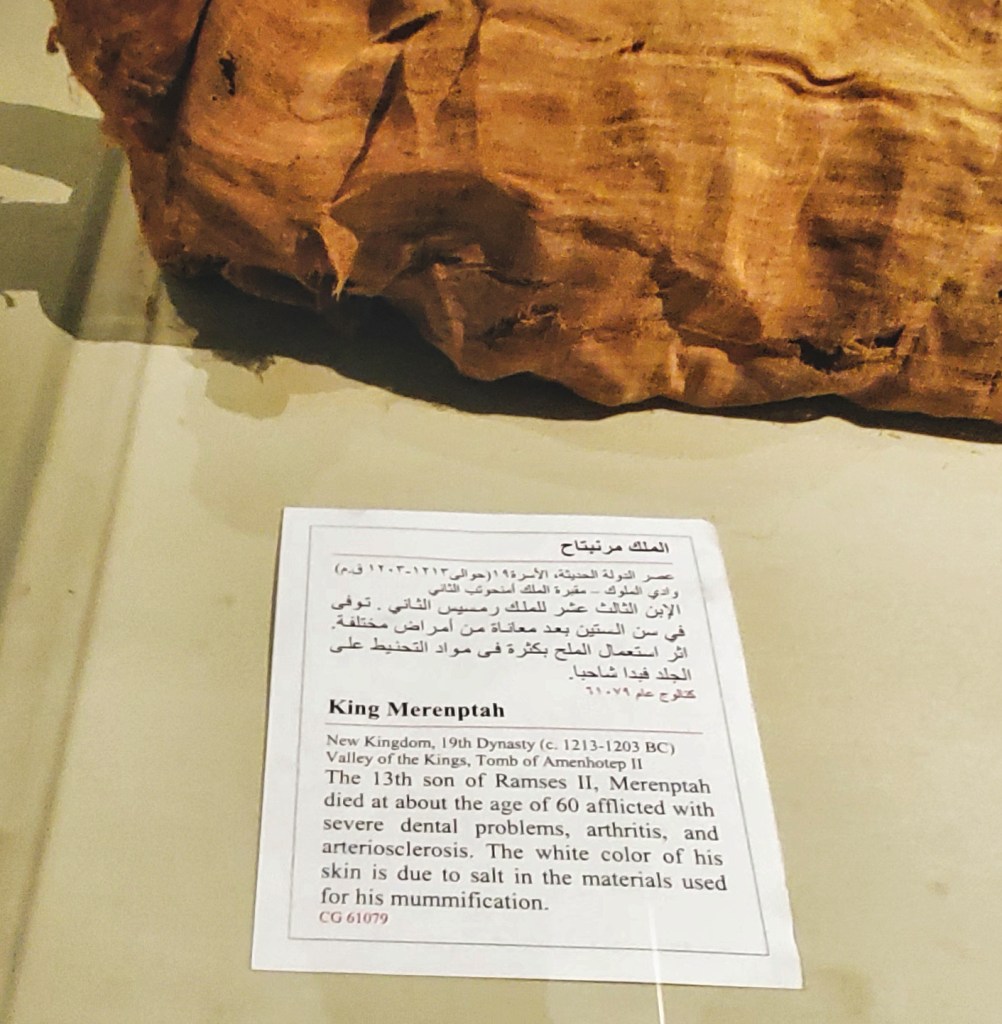 الملك مرنبتاح
عصر الدولة الحديثة، الأسرة ١٩ (حوالى ١٢١٣-١٢٠٣ ق.م)
وادي الملوك – مقبرة الملك أمنحوتب الثاني
الإبن الثالث عشر للملك رمسيس الثاني . توفى
في سن الستين بعد معاناة من أمراض مختلفة.
اثر استعمال الملح بكثرة فى مواد التحنيط على
الجلد فبدا شاحبا.
كتالوج عام ٦١٠٧٩
King Merenptah
New Kingdom, 19th Dynasty (c. 1213-1203 BC)
Valley of the Kings, Tomb of Amenhotep II
The 13th son of Ramses II, Merenptah
died at about the age of 60 afflicted with
severe dental problems, arthritis, and
arteriosclerosis. The white color of his
skin is due to salt in the materials used
for his mummification.
CG 61079